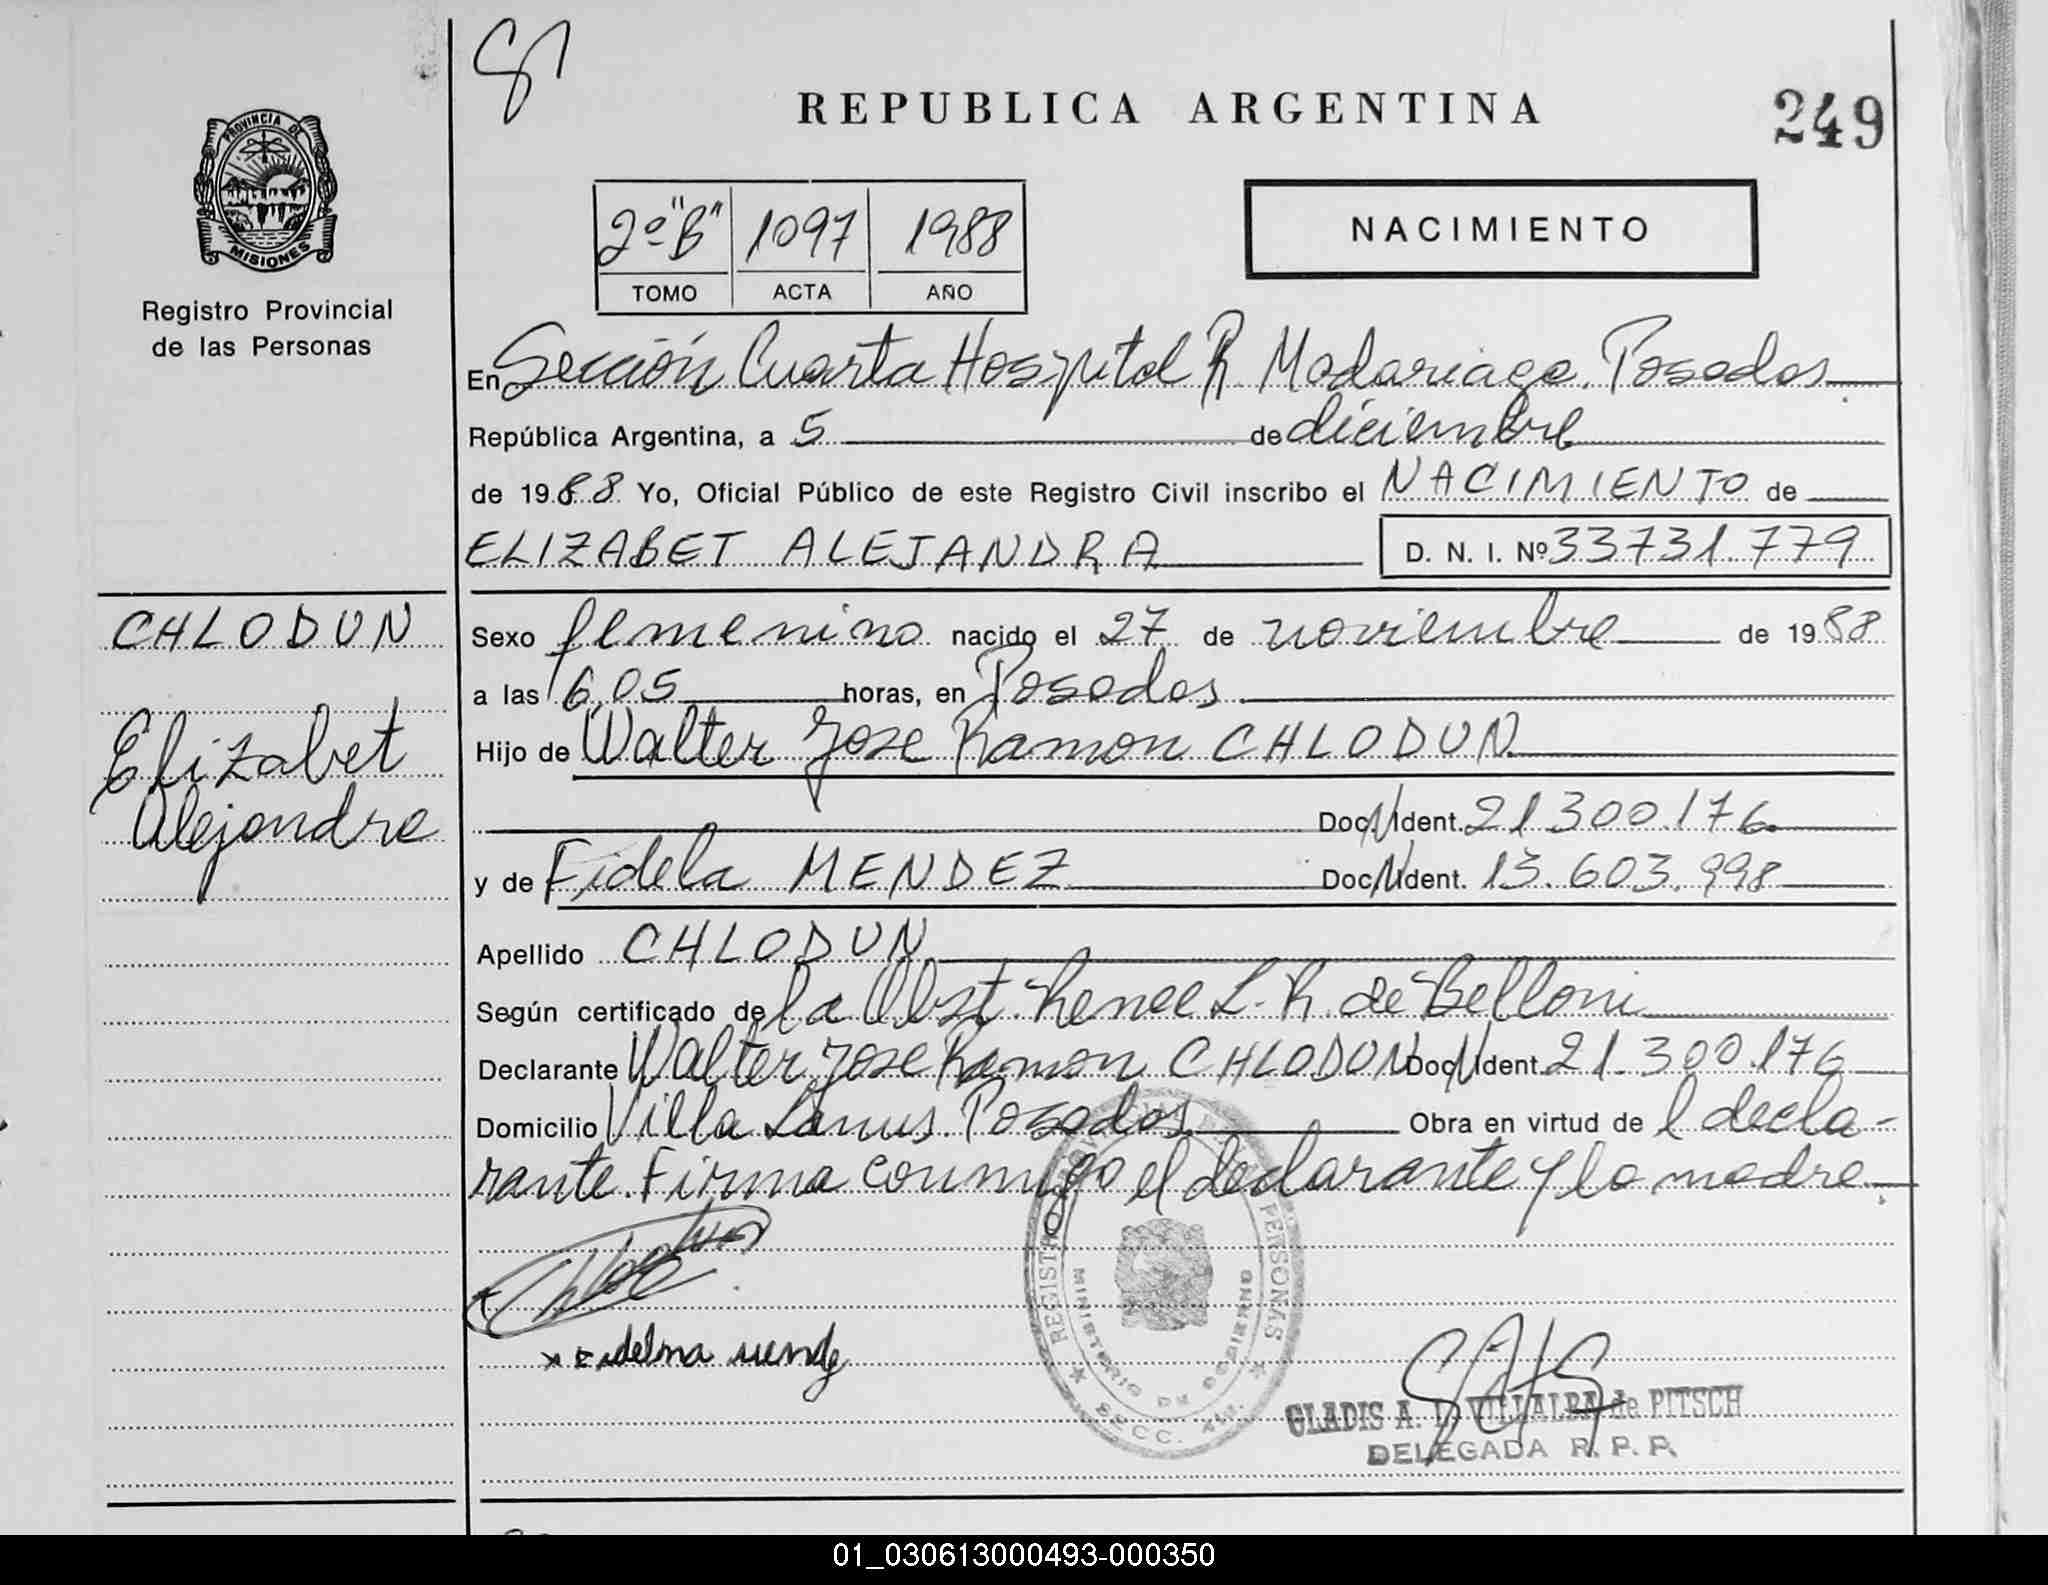 REPUBLICA ARGENTINA
249
PROVINCIA DE
MISIONES
Registro Provincial
de las Personas
2º "B" 1097 1988
TOMO ACTA AÑO
NACIMIENTO
En Sección Cuarta Hospital R. Madariaga. Posadas
República Argentina, a 5 de diciembre
de 1988 Yo, Oficial Público de este Registro Civil inscribo el NACIMIENTO de
ELIZABET ALEJANDRA D. N. I. Nº 33731.779
CHLODUN
Elizabet
Alejandra
Sexo femenino nacido el 27 de noviembre de 1988
a las 16,05 horas, en Posadas
Hijo de Walter Jose Ramon CHLODUN
Doc. N Ident. 21.300.176
y de Fidela MENDEZ Doc. N Ident. 13.603.998
Apellido CHLODUN
Según certificado de la Obst. Renee L. R. de Belloni
Declarante Walter Jose Ramon CHLODUN Doc N Ident. 21.300.176
Domicilio Villa Lanus. Posadas Obra en virtud de l decla-
rante. Firma conmigo el declarante y la madre.
REGISTRO PERSONAS
MINISTERIO DE GOBIERNO
SECC.
GLADIS A. L. VILLALBA de PITSCH
DELEGADA R. P. P.
01_030613000493-000350